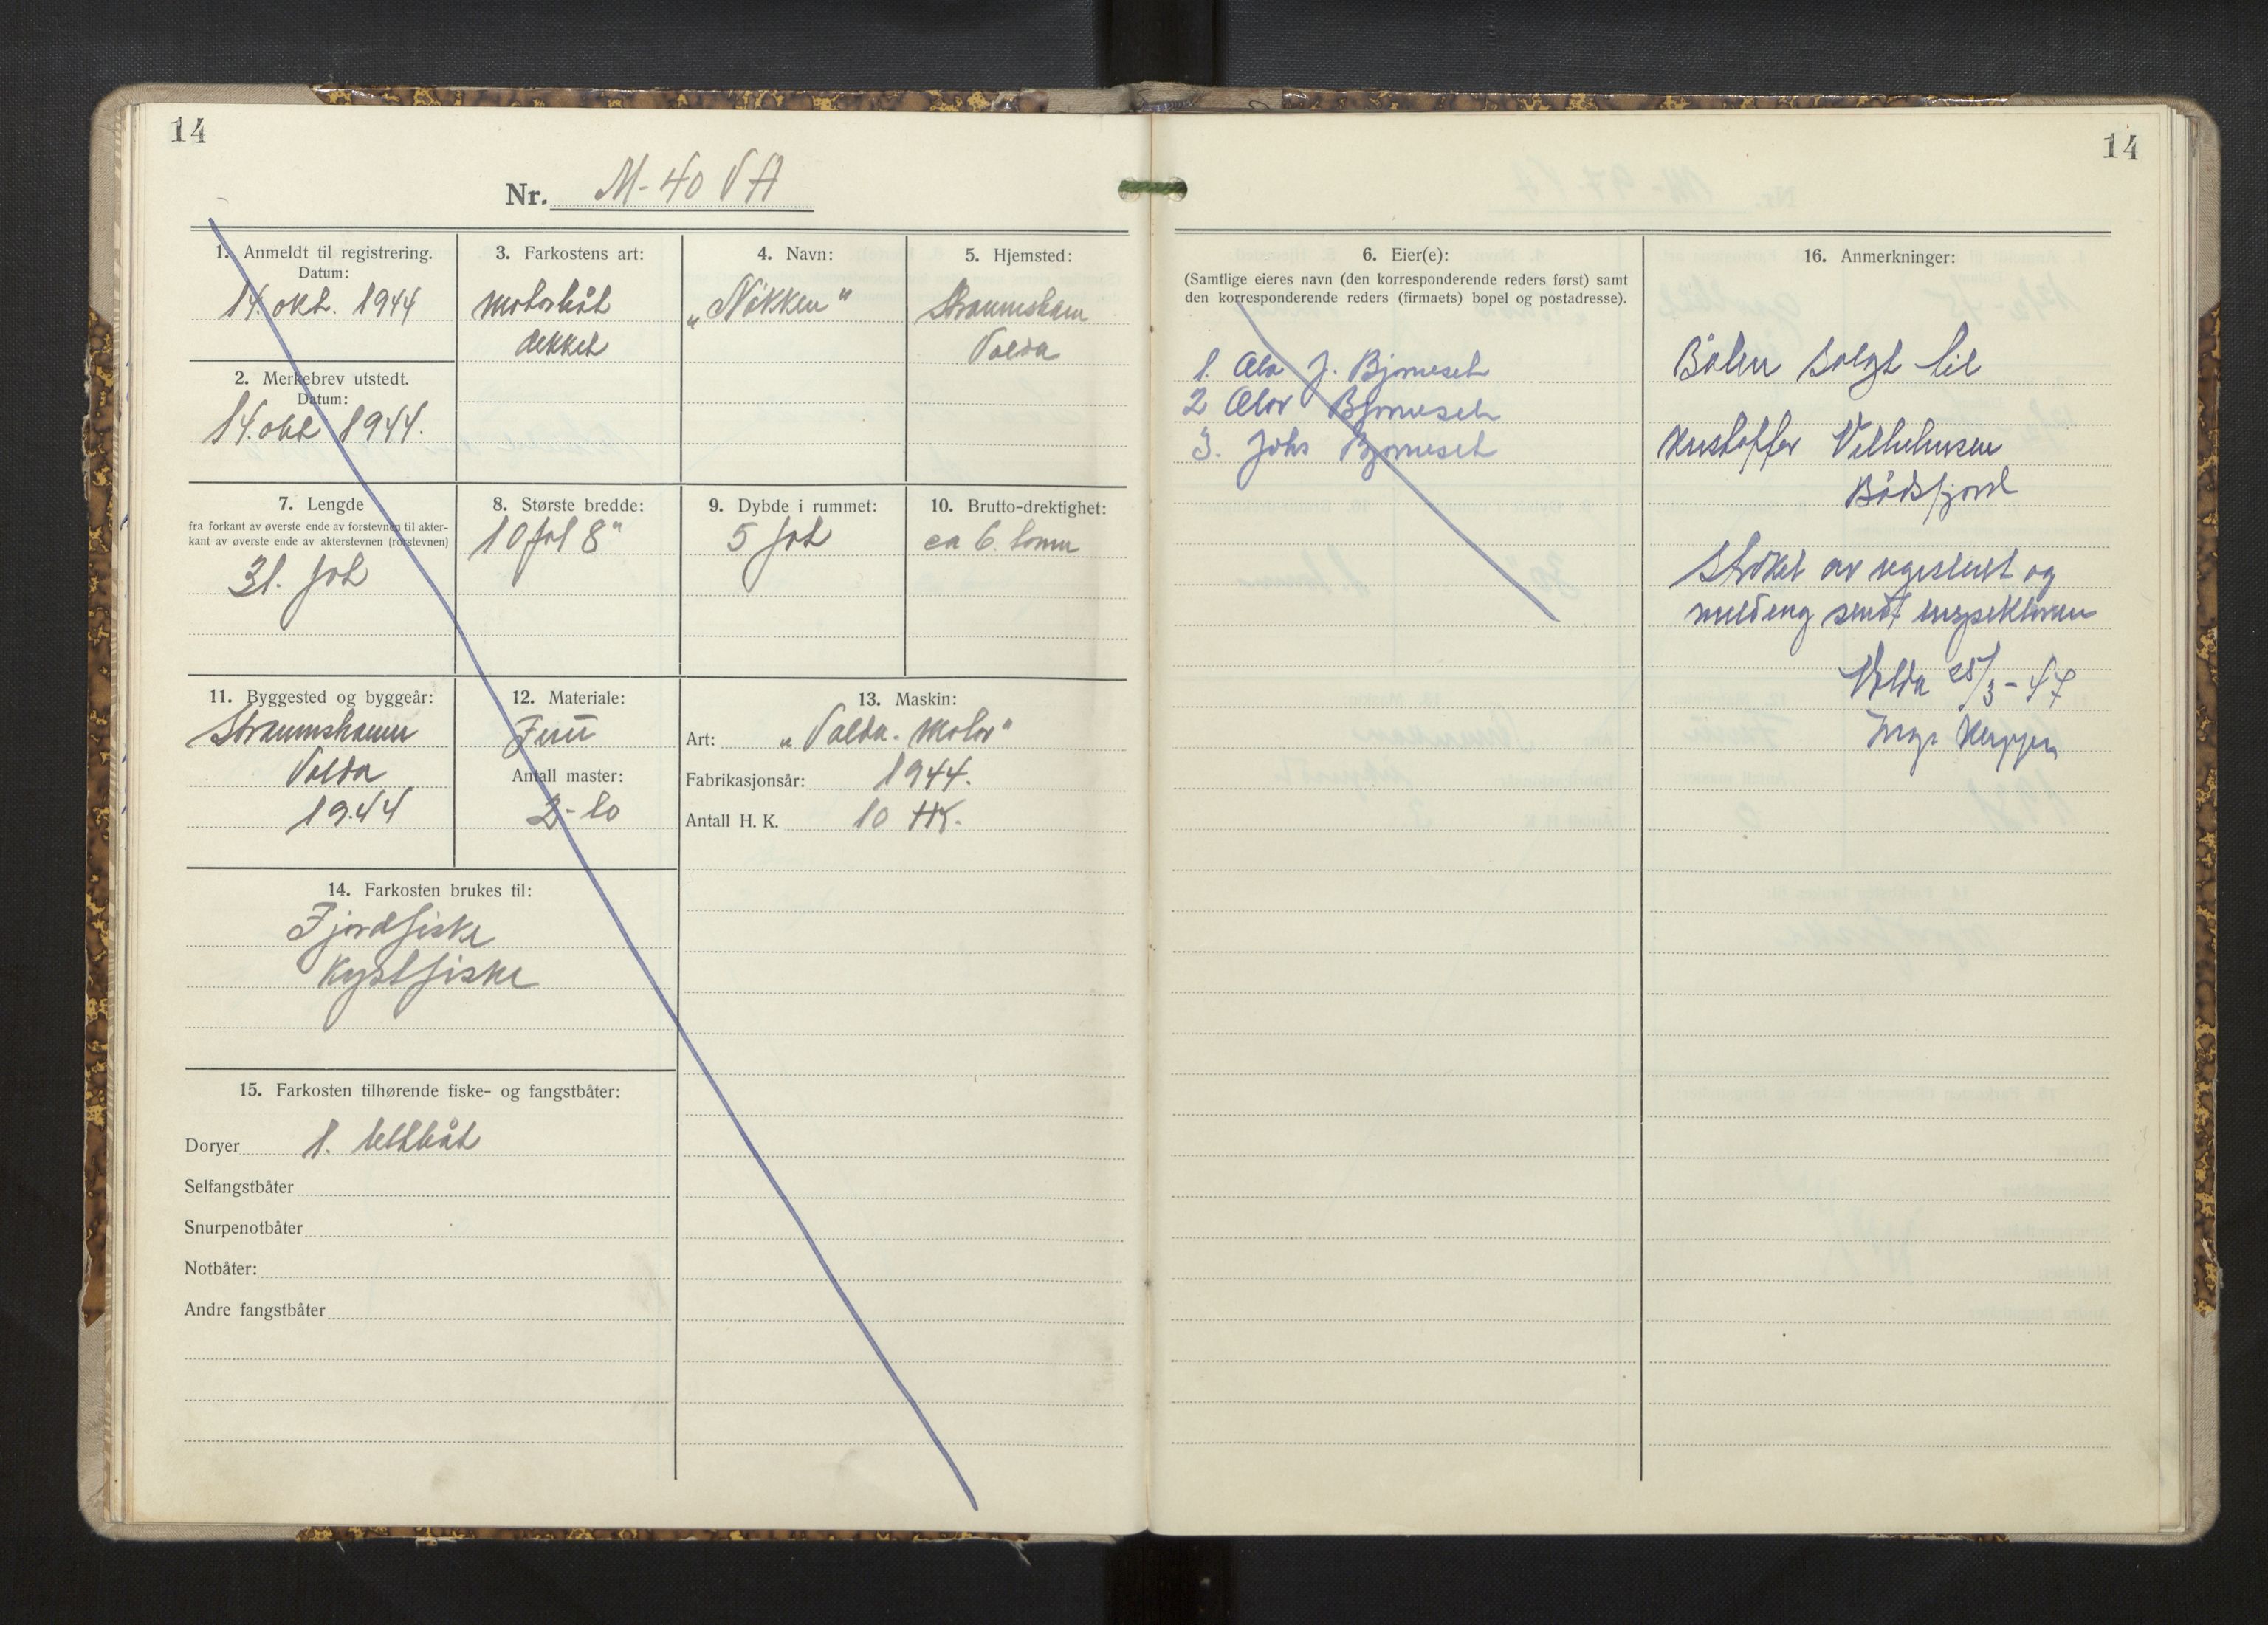 14
Nr. M-40 VA
1. Anmeldt til registrering.
Datum:
14. okt. 1944
2. Merkebrev utstedt.
Datum:
14. okt 1944.
3. Farkostens art:
Motorbåt
dekket
4. Navn:
"Nökken"
5. Hjemsted:
Straumshamn
Volda
7. Lengde
fra forkant av øverste ende av forstevnen til akter-
kant av øverste ende av akterstevnen (rorstevnen)
31. fot
8. Største bredde:
10 fot 8"
9. Dybde i rummet:
5 fot
10. Brutto-drektighet:
ca 6. tonn
11. Byggested og byggeår:
Straumshamn
Volda
1944
12. Materiale:
Furu
Antall master:
2- to
13. Maskin:
Art: "Volda. Motor"
Fabrikasjonsår: 1944.
Antall H. K. 10 HK.
14. Farkosten brukes til:
Fjordfiske
Kystfiske
15. Farkosten tilhørende fiske- og fangstbåter:
Doryer 1. lettbåt
Selfangstbåter
Snurpenotbåter
Notbåter:
Andre fangstbåter
14
6. Eier(e):
(Samtlige eieres navn (den korresponderende reders først) samt
den korresponderende reders (firmaets) bopel og postadresse).
1. Ola J. Bjørneset
2 Olav Bjørneset
3. Johs Bjørneset
16. Anmerkninger:
Båten solgt til
Kristoffer Vilhelmsen
Båtsfjord
Strøket av registeret og
melding sendt inspektøren
Volda 25/3-47
Inga